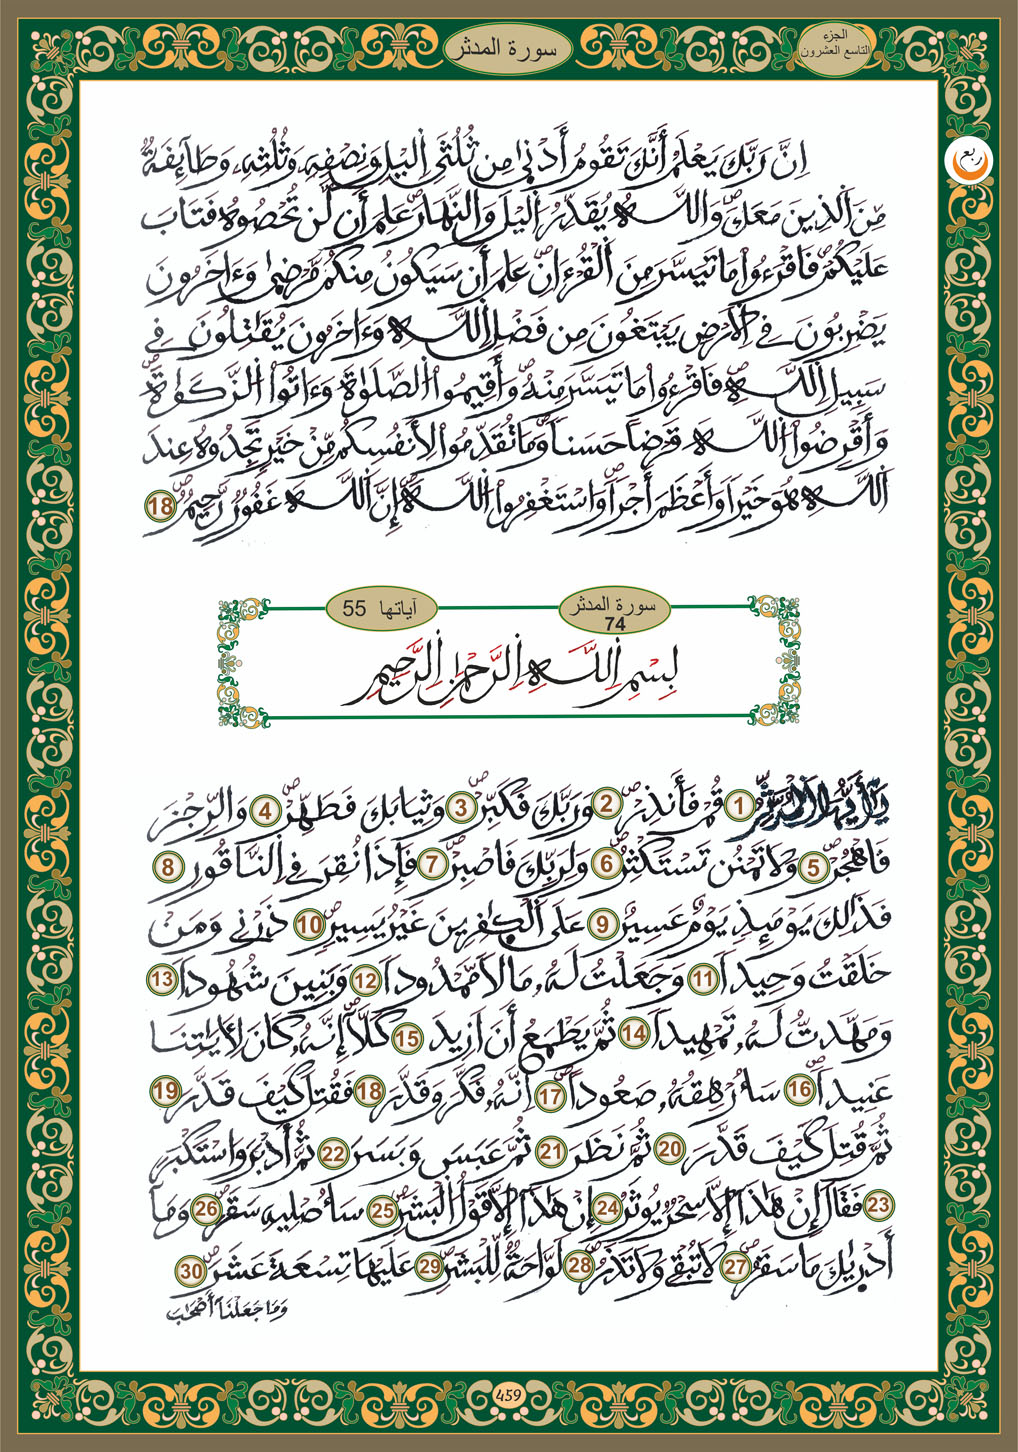 سورة المدثر
الجزء
التاسع العشرون
ربع
اِنَّ رَبَّكَ يَعْلَمُ أَنَّكَ تَقُومُ أَدْنٰى مِن ثُلُثَيِ اِ۬ليْلِ وَنِصْفِهِۦ وَثُلُثِهِۦ وَطَآئِفَةٞ
مِّنَ اَ۬لذِينَ مَعَكَۖ وَاللَّهُ يُقَدِّرُ اُ۬ليْلَ وَالنَّهَارَۖ عَلِمَ أَن لَّن تُحْصُوهُ فَتَابَ
عَلَيْكُمْۖ فَاقْرَءُواْ مَا تَيَسَّرَ مِنَ اَ۬لْقُرْءَانِۖ عَلِمَ أَن سَيَكُونُ مِنكُم مَّرْضٰى وَءَاخَرُونَ
يَضْرِبُونَ فِي اِ۬لَارْضِ يَبْتَغُونَ مِن فَضْلِ اِ۬للَّهِ وَءَاخَرُونَ يُقَٰتِلُونَ فِي
سَبِيلِ اِ۬للَّهِۖ فَاقْرَءُواْ مَا تَيَسَّرَ مِنْهُۖ وَأَقِيمُواْ اُ۬لصَّلَوٰةَ وَءَاتُواْ اُ۬لزَّكَوٰةَۖ
وَأَقْرِضُواْ اُ۬للَّهَ قَرْضاً حَسَناٗۖ وَمَا تُقَدِّمُواْ لِأَنفُسِكُم مِّنْ خَيْرٖ تَجِدُوهُ عِندَ
اَ۬للَّهِ هُوَ خَيْراٗ وَأَعْظَمَ أَجْراٗۖ وَاسْتَغْفِرُواْ اُ۬للَّهَۖ إِنَّ اَ۬للَّهَ غَفُورٞ رَّحِيمٞۖ 18
سورة المدثر 74 آياتها 55
بِسْمِ اِ۬للَّهِ اِ۬لرَّحْمَٰنِ اِ۬لرَّحِيمِ
يَٰٓأَيُّهَا اَ۬لْمُدَّثِّرُ 1 قُمْ فَأَنذِرْۖ 2 وَرَبَّكَ فَكَبِّرْۖ 3 وَثِيَابَكَ فَطَهِّرْۖ 4 وَالرِّجْزَ
فَاهْجُرْۖ 5 وَلَا تَمْنُن تَسْتَكْثِرُۖ 6 وَلِرَبِّكَ فَاصْبِرْۖ 7 فَإِذَا نُقِرَ فِي اِ۬لنَّاقُورِ 8
فَذَٰلِكَ يَوْمَئِذٖ يَوْمٌ عَسِيرٌ 9 عَلَى اَ۬لْكٰ۪فِرِينَ غَيْرُ يَسِيرٖۖ 10 ذَرْنِي وَمَنْ
خَلَقْتُ وَحِيداٗ 11 وَجَعَلْتُ لَهُۥ مَالاٗ مَّمْدُوداٗ 12 وَبَنِينَ شُهُوداٗ 13
وَمَهَّدتُّ لَهُۥ تَمْهِيداٗ 14 ثُمَّ يَطْمَعُ أَنَ اَزِيدَ 15 كَلَّآۖ إِنَّهُۥ كَانَ لِأٓيَٰتِنَا
عَنِيداٗۖ 16 سَأُرْهِقُهُۥ صَعُوداًۖ 17 اِنَّهُۥ فَكَّرَ وَقَدَّرَ 18 فَقُتِلَ كَيْفَ قَدَّرَ 19
ثُمَّ قُتِلَ كَيْفَ قَدَّرَ 20 ثُمَّ نَظَرَ 21 ثُمَّ عَبَسَ وَبَسَرَ 22 ثُمَّ أَدْبَرَ وَاسْتَكْبَرَ
23 فَقَالَ إِنْ هَٰذَآ إِلَّا سِحْرٞ يُوثَرُ 24 إِنْ هَٰذَآ إِلَّا قَوْلُ اُ۬لْبَشَرِۖ 25 سَأُصْلِيهِ سَقَرَۖ 26 وَمَآ
أَدْر۪ىٰكَ مَا سَقَرُۖ 27 لَا تُبْقِي وَلَا تَذَرُۖ 28 لَوَّاحَةٞ لِّلْبَشَرِۖ 29 عَلَيْهَا تِسْعَةَ عَشَرَۖ 30
وَمَا جَعَلْنَآ أَصْحَٰبَ
459